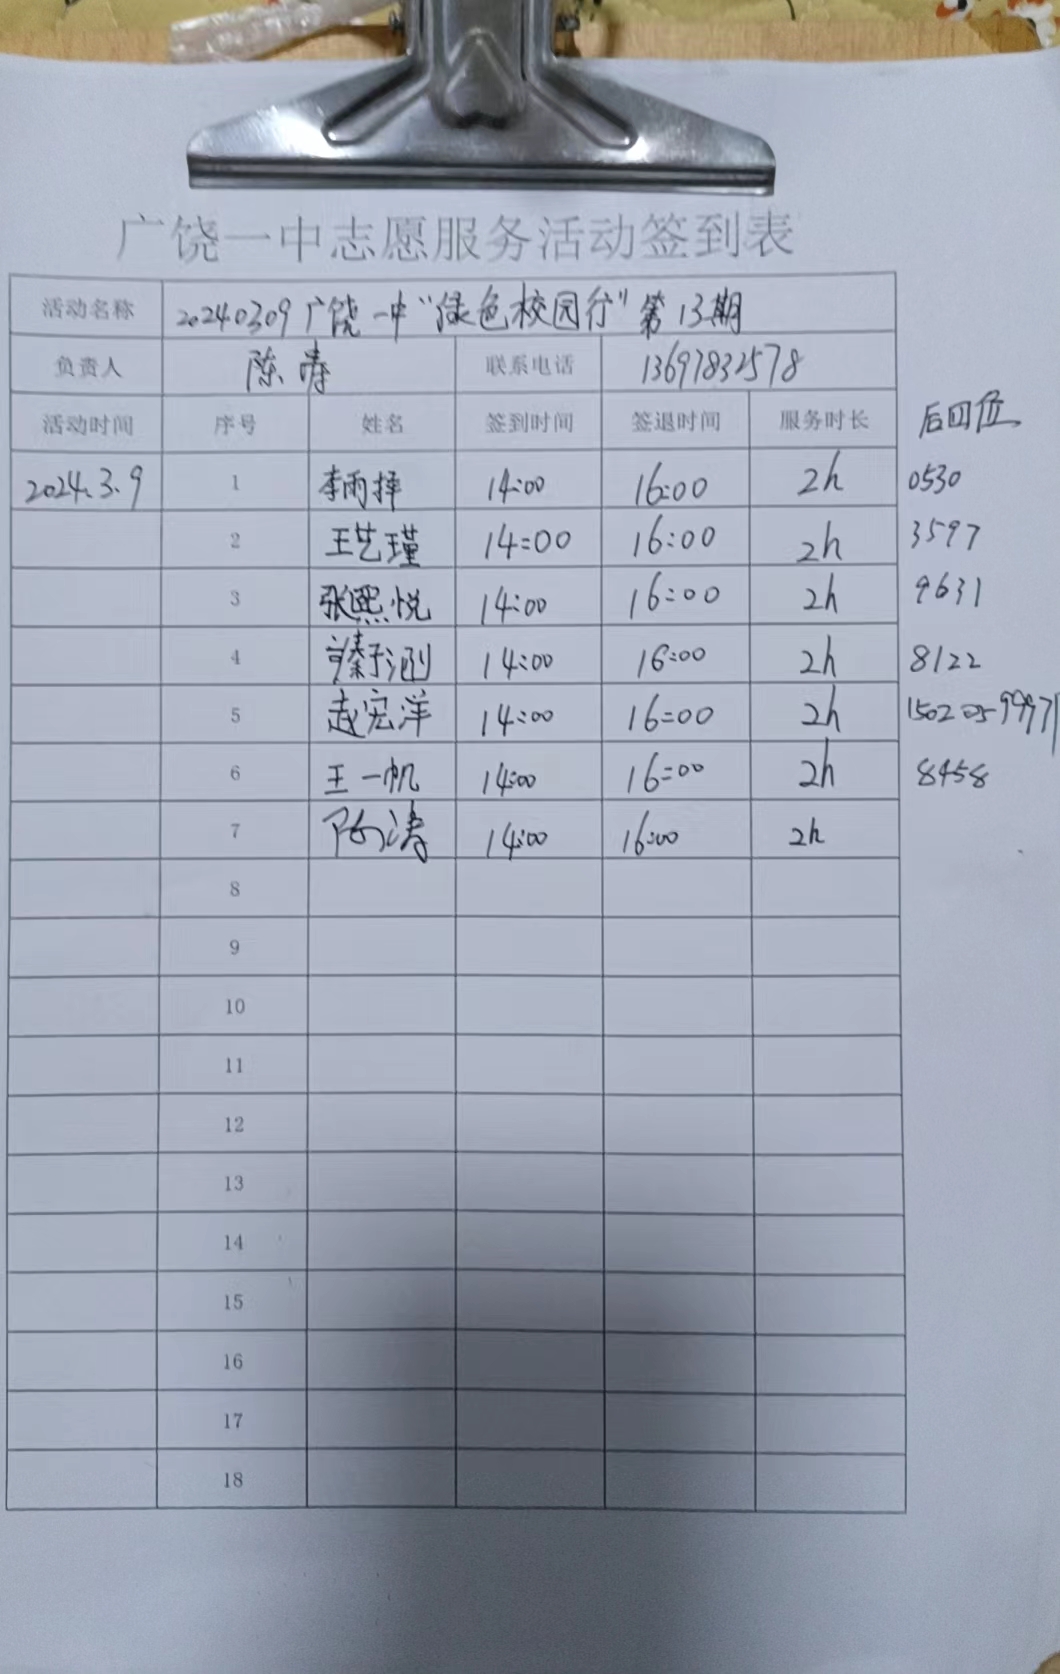 广饶一中志愿服务活动签到表
活动名称 20240309广饶一中“绿色校园行”第13期
负责人 陈涛 联系电话 13697832578
活动时间 序号 姓名 签到时间 签退时间 服务时长 后四位
2024.3.9 1 李雨择 14:00 16:00 2h 0530
2 王艺瑾 14:00 16:00 2h 3597
3 张熙悦 14:00 16:00 2h 9631
4 14:00 16:00 2h 8122
5 赵宏洋 14:00 16:00 2h
6 王一帆 14:00 16:00 2h 8458
7 陈涛 14:00 16:00 2h
8
9
10
11
12
13
14
15
16
17
18